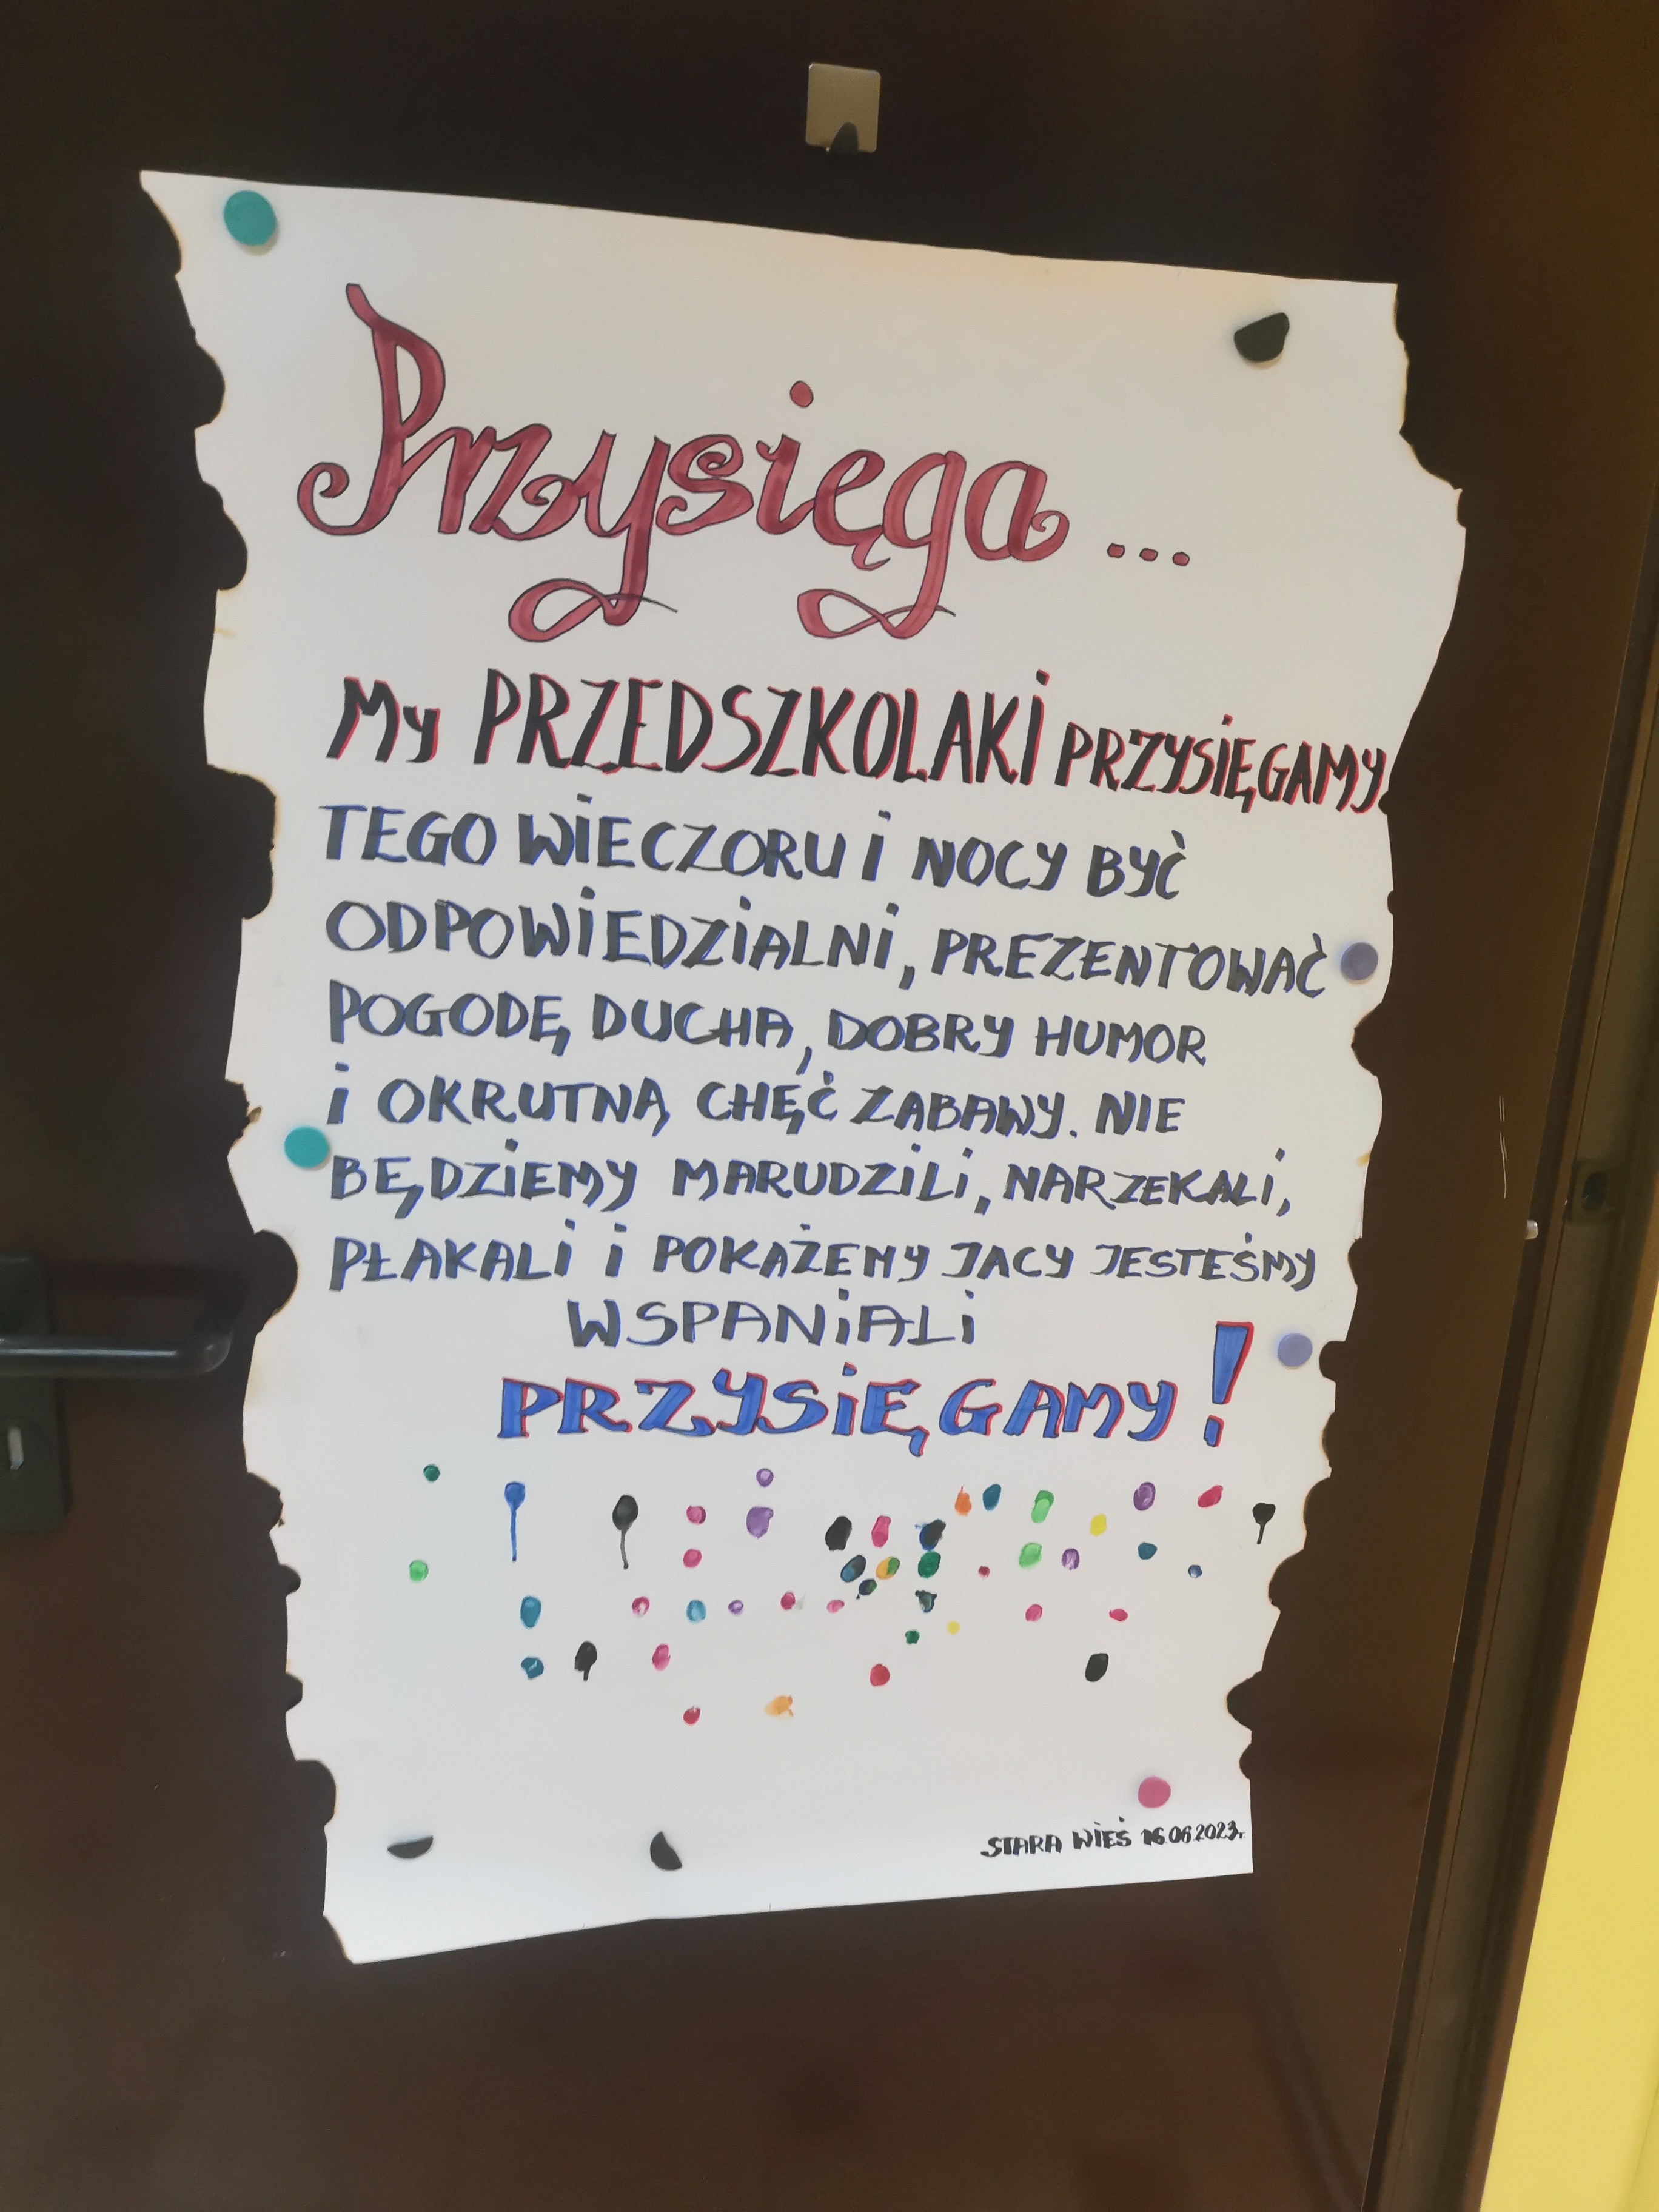 Przysięga...
My PRZEDSZKOLAKI PRZYSIĘGAMY
TEGO WIECZORU I NOCY BYĆ
ODPOWIEDZIALNI, PREZENTOWAĆ
POGODĘ DUCHA, DOBRY HUMOR
I OKRUTNĄ CHĘĆ ZABAWY. NIE
BĘDZIEMY MARUDZILI, NARZEKALI,
PŁAKALI I POKAŻEMY JACY JESTEŚMY
WSPANIALI
PRZYSIĘGAMY!
STARA WIEŚ 16.06.2023r.